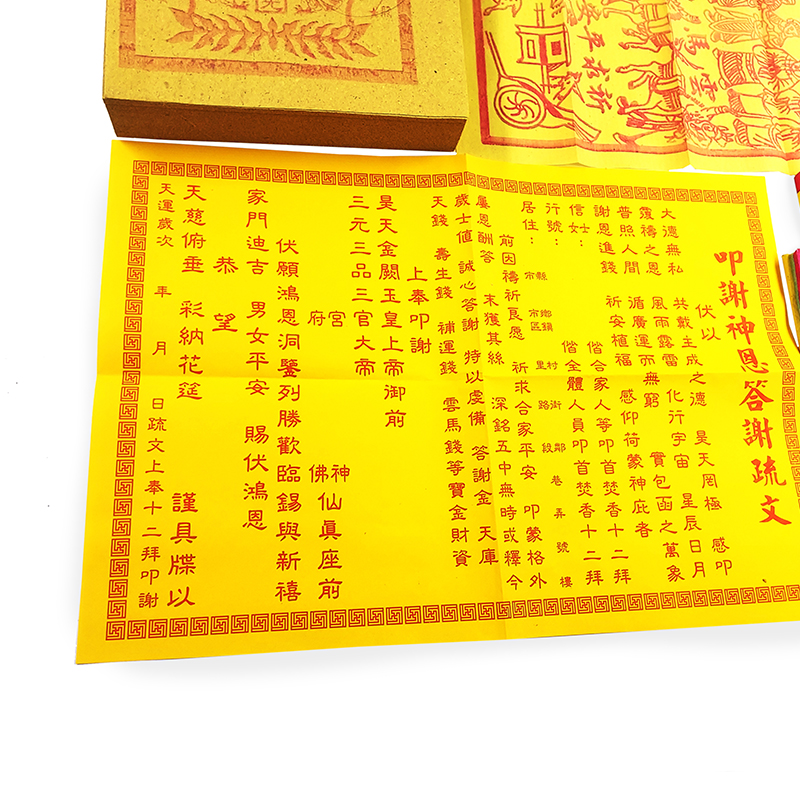 祈福平安
雲馬
叩謝神恩答謝疏文
伏以
大德無私 共戴主成之德 昊天罔極 感叩
覆禱之恩 風雨露雷 化行宇宙 星辰日月
普照人間 循廣運而無窮 實包函之萬象
謝恩進錢 祈安植福 感仰荷蒙神庇者
信士女: 偕合家人等叩首焚香十二拜
行號: 偕全體人員叩首焚香十二拜
居住: 縣市 鄉鎮市區 村里 街路 鄰段 巷 弄 號 樓
前因禱祈良愿 祈求合家平安 叩蒙格外
屢恩酬答 未獲其絲 深銘五中無時或釋今
歲士值 誠心答謝 特以虔備 答謝金 天庫
天錢 壽生錢 補運錢 雲馬錢等寶金財資
上奉叩謝
昊天金闕玉皇上帝御前
三元三品三官大帝
宮府 神佛仙眞座前
伏願鴻恩洞鑒列勝歡臨錫與新禧
家門迪吉 男女平安 賜伏鴻恩
恭望
天慈俯垂 彩納花筵
謹具牒以
天運歲次 年 月 日疏文上奉十二拜叩謝